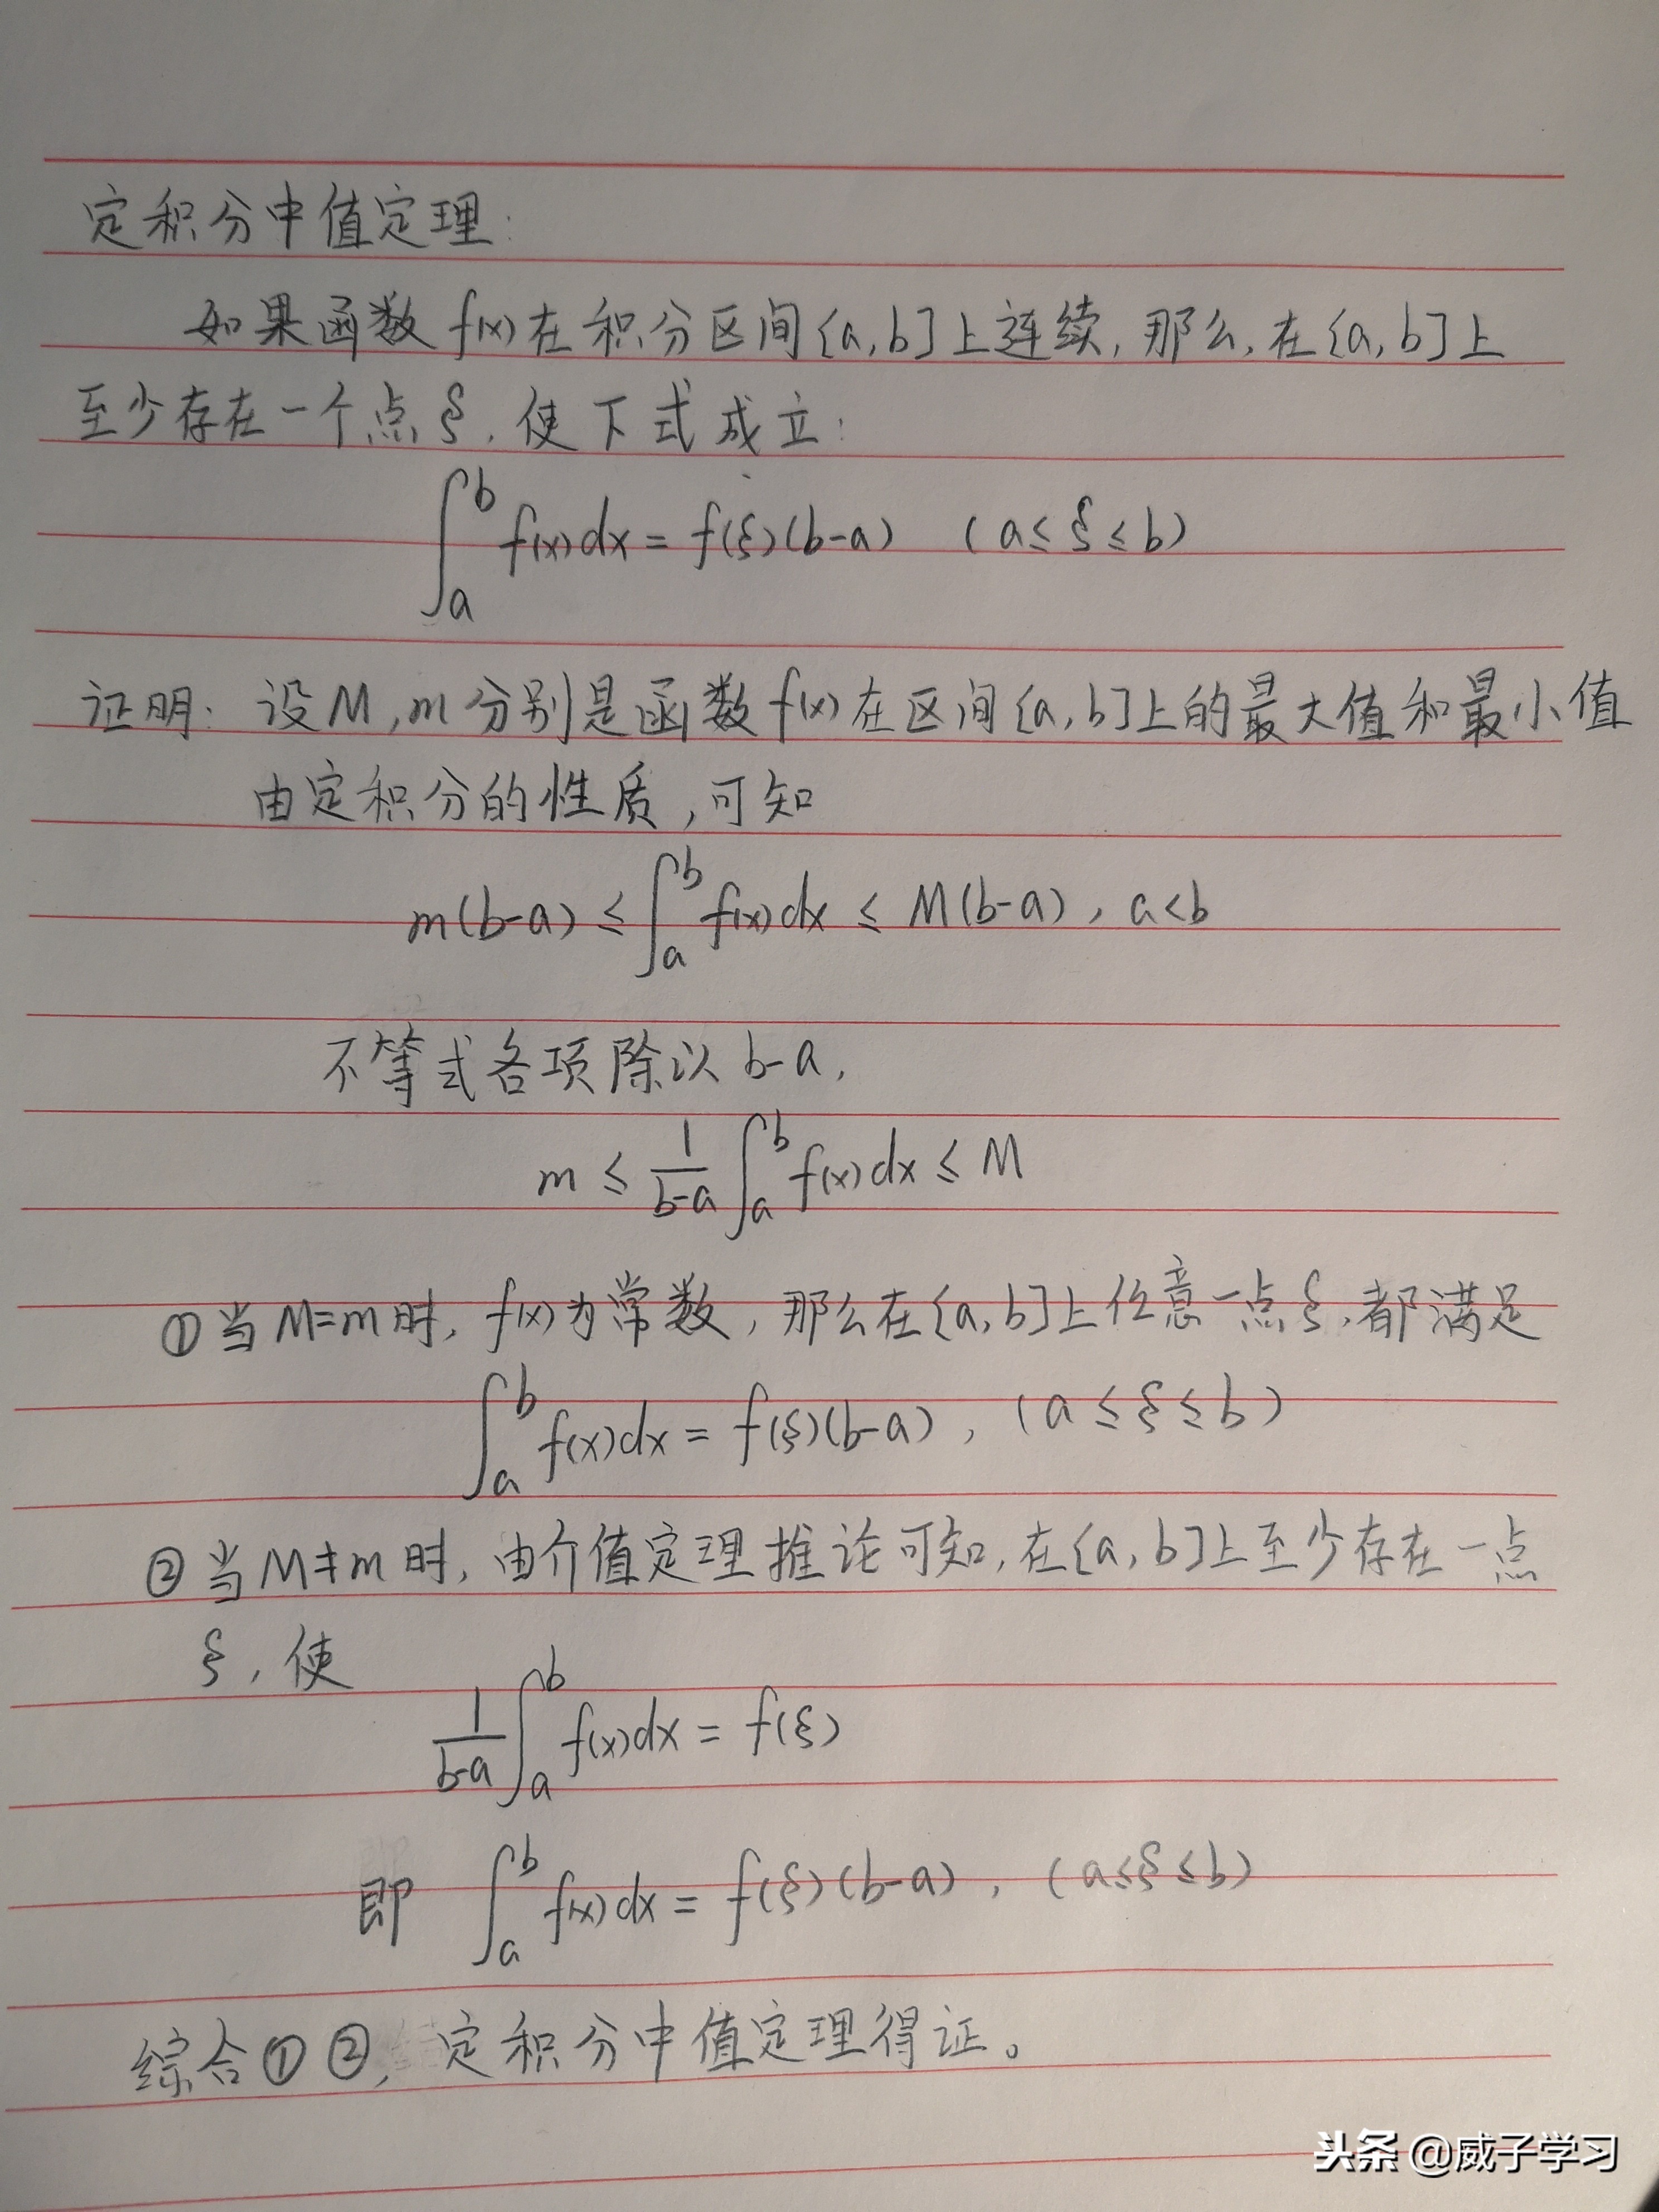 定积分中值定理:
如果函数 f(x) 在积分区间[a,b]上连续,那么,在[a,b]上
至少存在一个点ξ,使下式成立:
∫_a^b f(x)dx = f(ξ)(b-a) (a≤ξ≤b)
证明: 设M,m分别是函数f(x)在区间[a,b]上的最大值和最小值
由定积分的性质,可知
m(b-a) ≤ ∫_a^b f(x)dx ≤ M(b-a), a<b
不等式各项除以b-a,
m ≤ 1/(b-a) ∫_a^b f(x)dx ≤ M
①当M=m时, f(x)为常数,那么在[a,b]上任意一点ξ,都满足
∫_a^b f(x)dx = f(ξ)(b-a), (a≤ξ≤b)
②当M≠m时,由介值定理推论可知,在[a,b]上至少存在一点
ξ,使
1/(b-a) ∫_a^b f(x)dx = f(ξ)
即 ∫_a^b f(x)dx = f(ξ)(b-a), (a≤ξ≤b)
综合①②,定积分中值定理得证。
头条 @威子学习